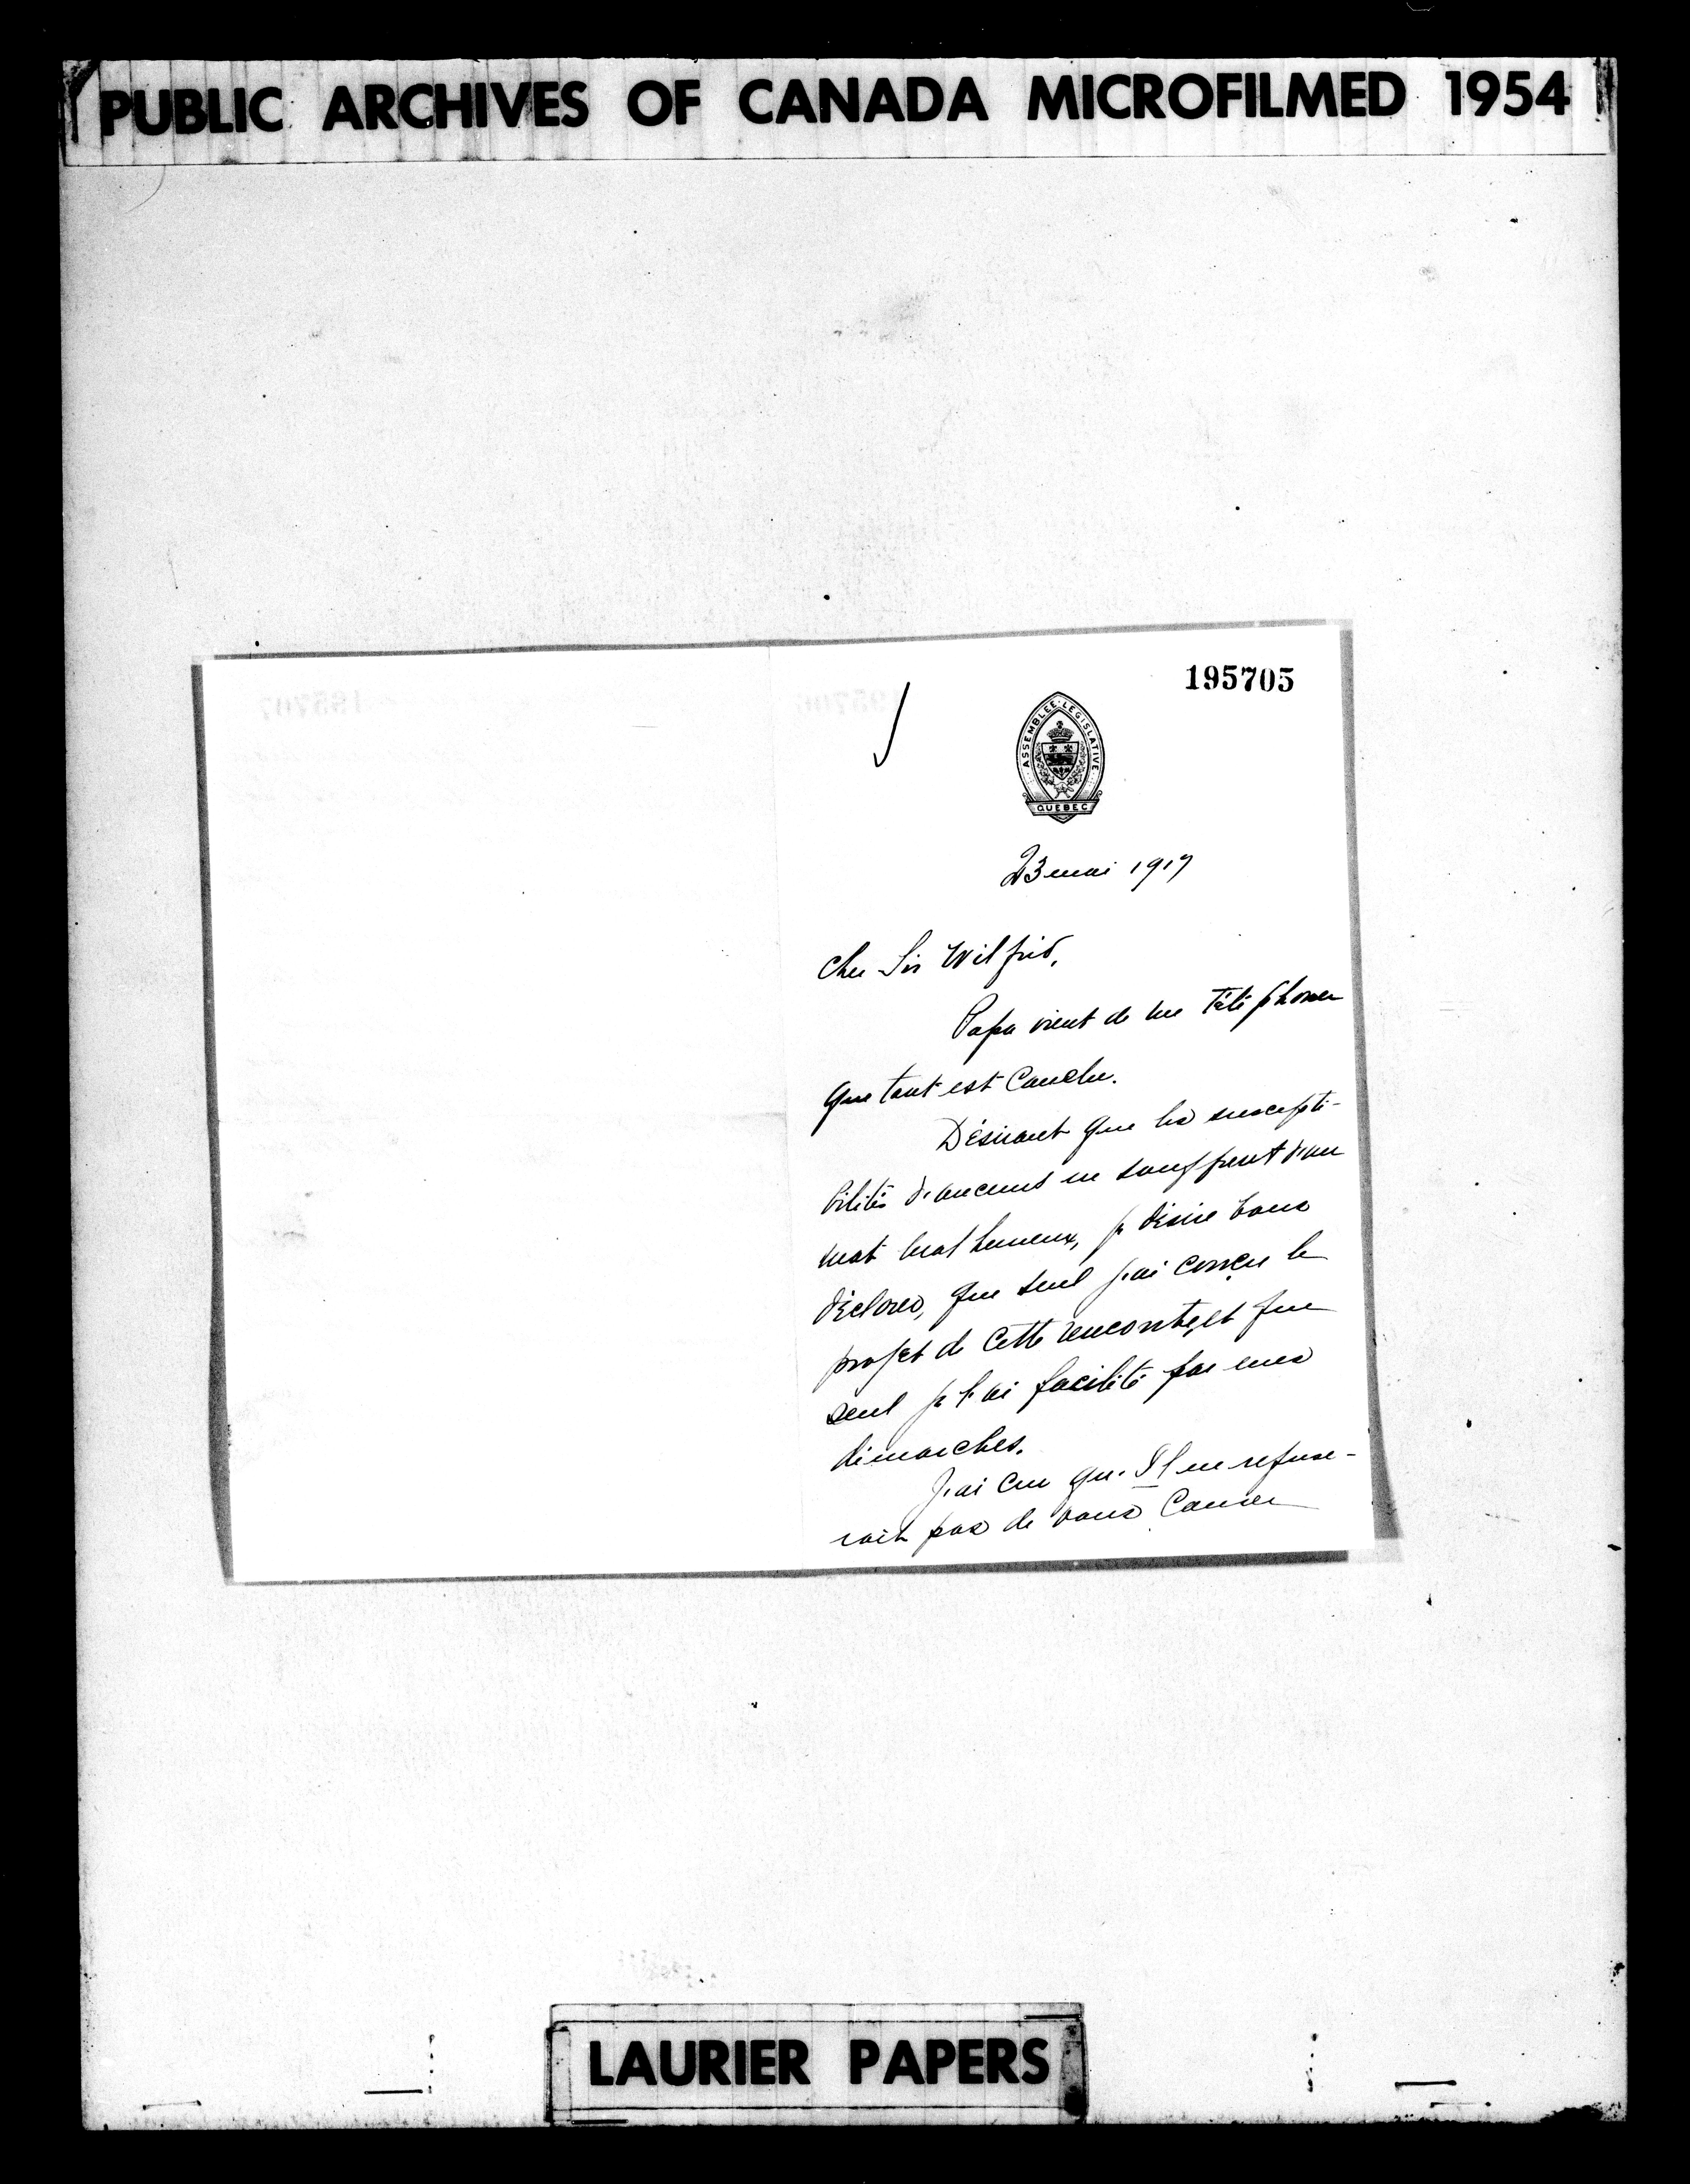 PUBLIC ARCHIVES OF CANADA MICROFILMED 1954
195705
ASSEMBLEE LEGISLATIVE
QUEBEC
23 mai 1917
Cher Sir Wilfrid,
Papa vient de me téléphoner
que tout est conclu.
Désirant que les suscepti-
bilités d'aucuns ne souffrent d'un
mot malheureux, je désire vous
déclarer, que seul j'ai conçu le
projet de cette rencontre, et que
seul je l'ai facilité par mes
démarches.
J'ai cru qu'Il ne refuse-
rait pas de vous causer
LAURIER PAPERS